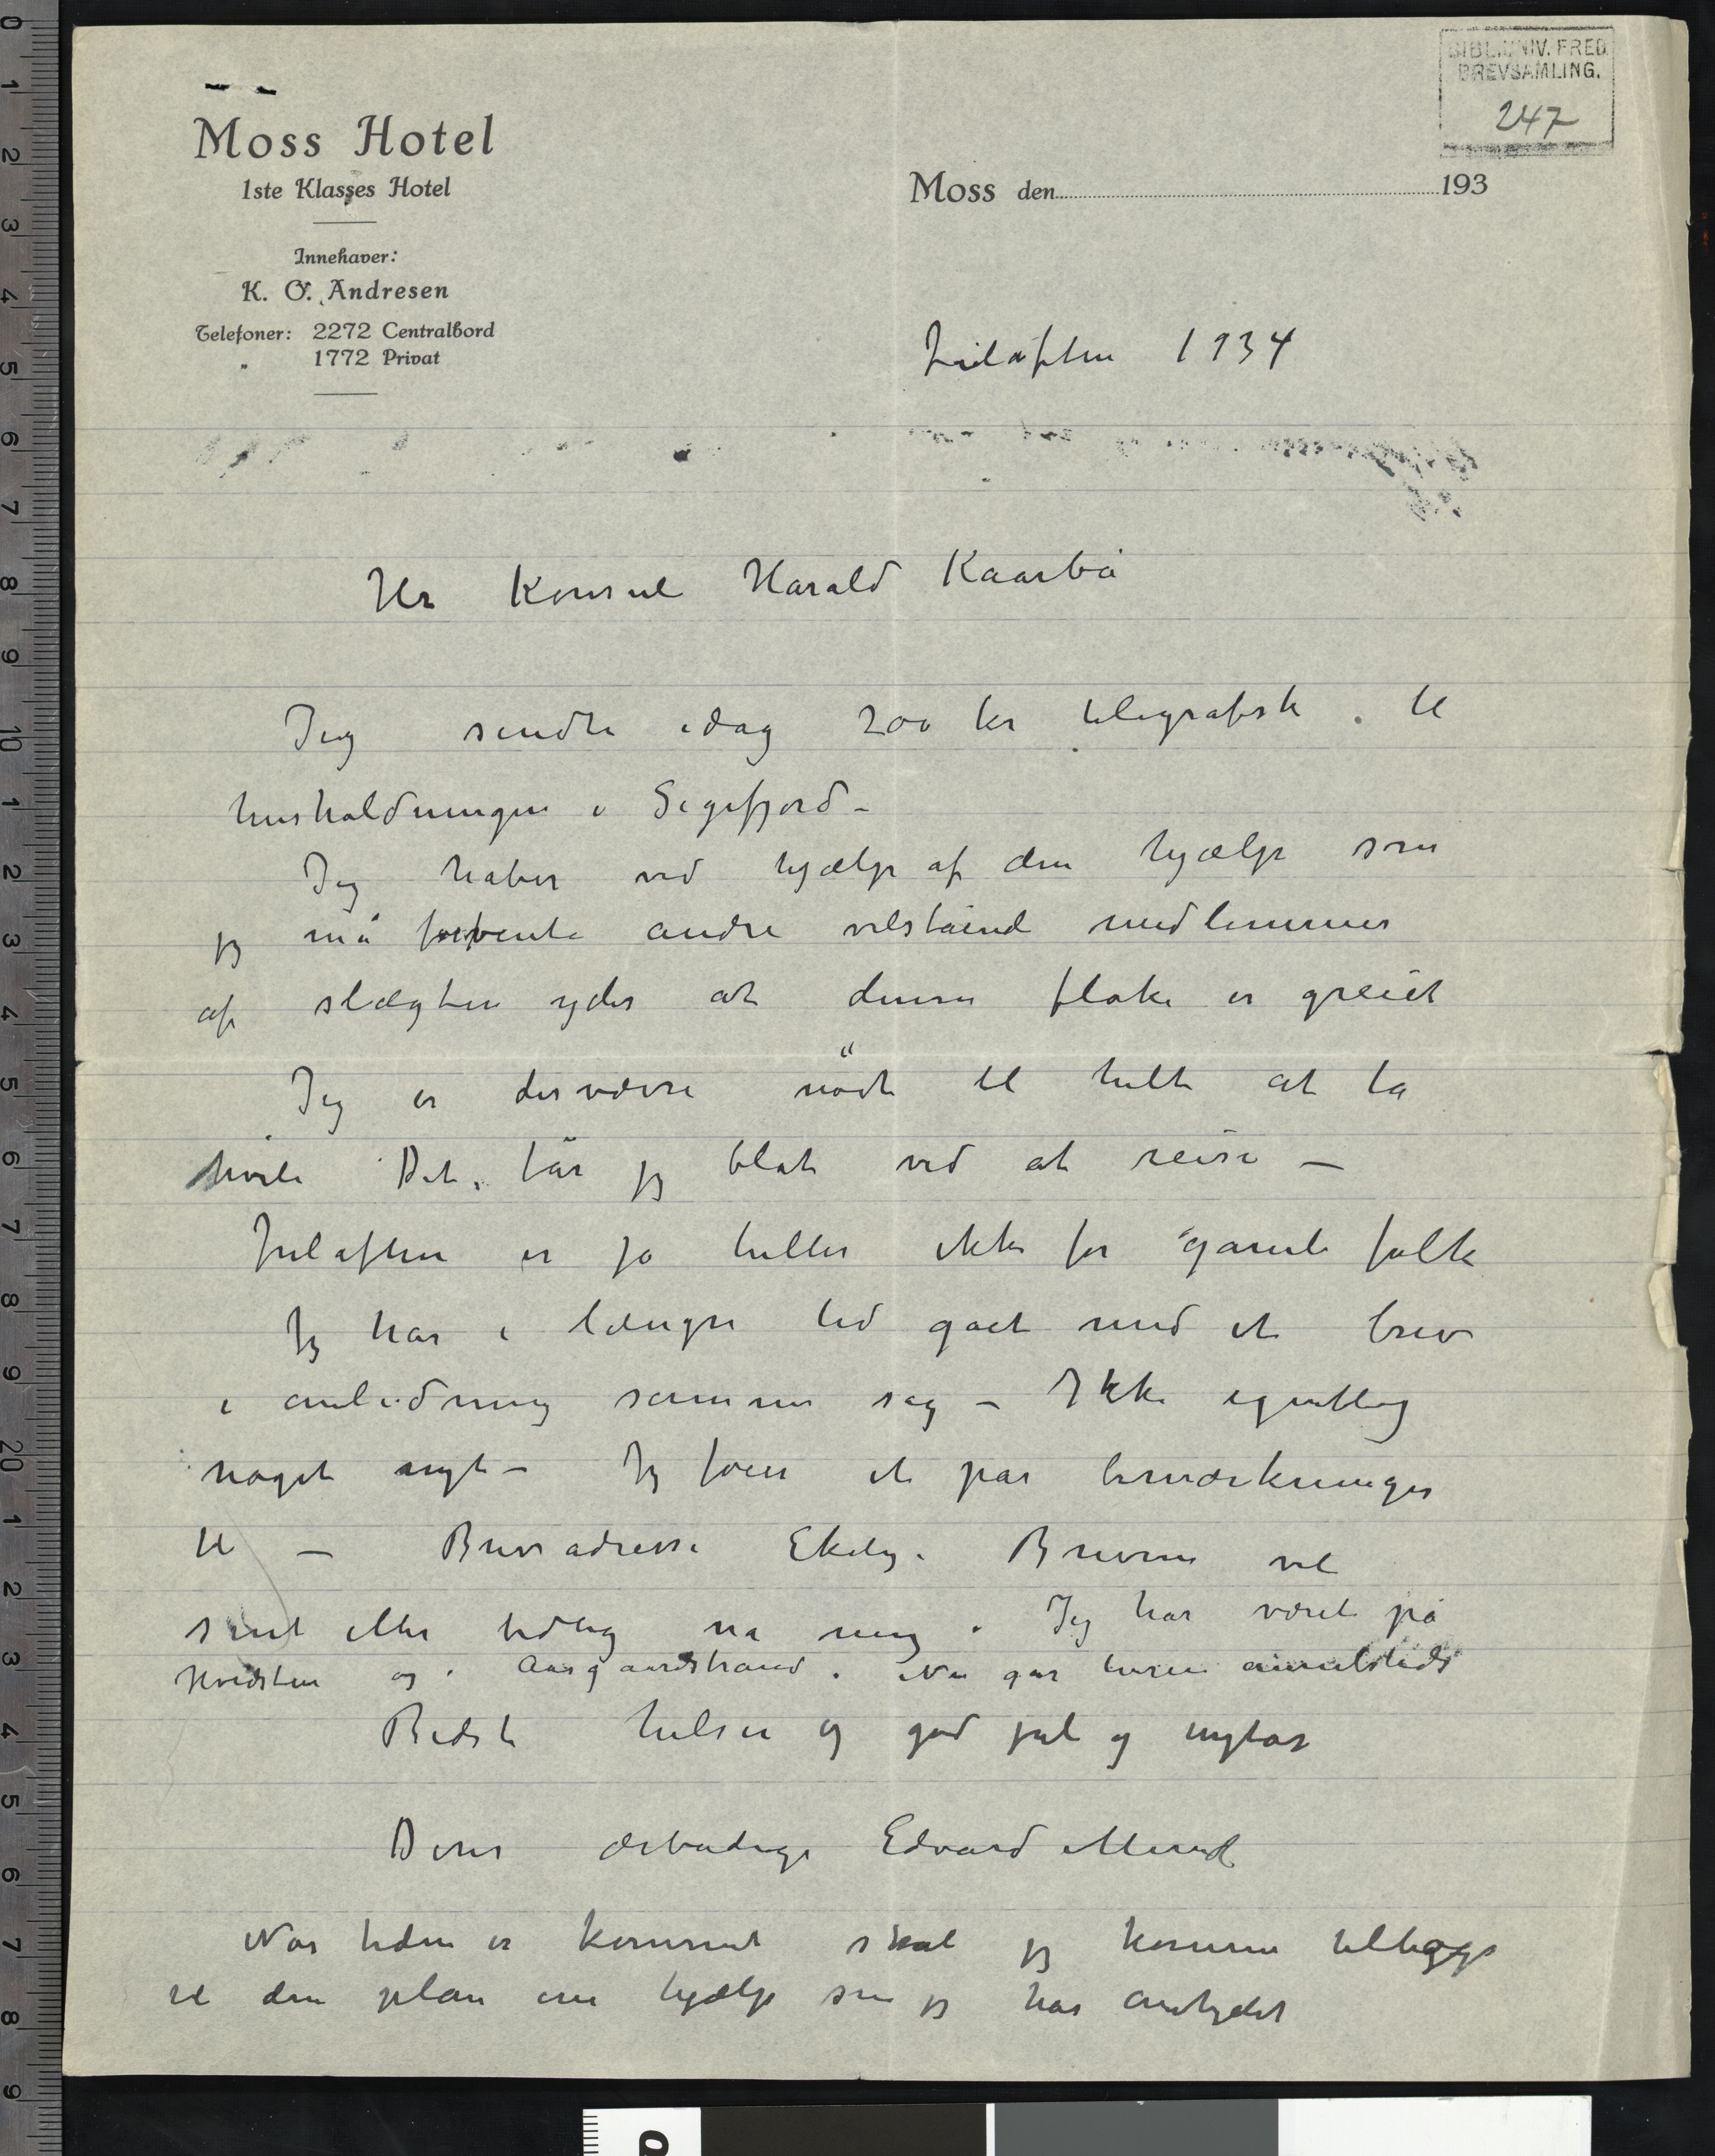 BIBL. UNIV. FRED.
BREVSAMLING.
247
Moss Hotel
1ste Klasses Hotel
Innehaver:
K. O. Andresen
Telefoner: 2272 Centralbord
" 1772 Privat
Moss den 193
Juleaften 1934
Hr Konsul Harald Kaarbø
Jeg sendte idag 200 kr telegrafisk til
husholdningen i Sigefjord –
Jeg håber ved hjælp af den hjælp som
jeg må forvente andre velstående medlemmer
af slægten yder at denne floke er greiet
Jeg er desværre nødt til helt at ta
hvile Det får jeg blot ved at reise –
Julaften er jo heller ikke for gamle folk
Jeg har i længre tid gået med et brev
i anledning samme sag – Ikke egentlig
noget nyt – Jeg føier et par bemærkninger
til – Brevadresse Ekely. Brevene vil
sent eller tidlig nå mig. Jeg har været på
Hvidsten og i Aasgaardstrand. Nu går turen annetsteds
Bedste hilsen og god jul og nytår
Deres ærbødige Edvard Munch
Når tiden er kommet skal jeg komme tilbage
til den plan om hjælp som jeg har antydet